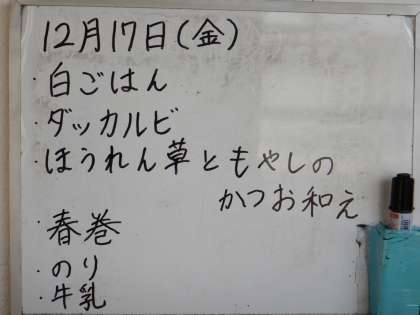 12月17日(金)
・白ごはん
・ダッカルビ
・ほうれん草ともやしの
かつお和え
・春巻
・のり
・牛乳